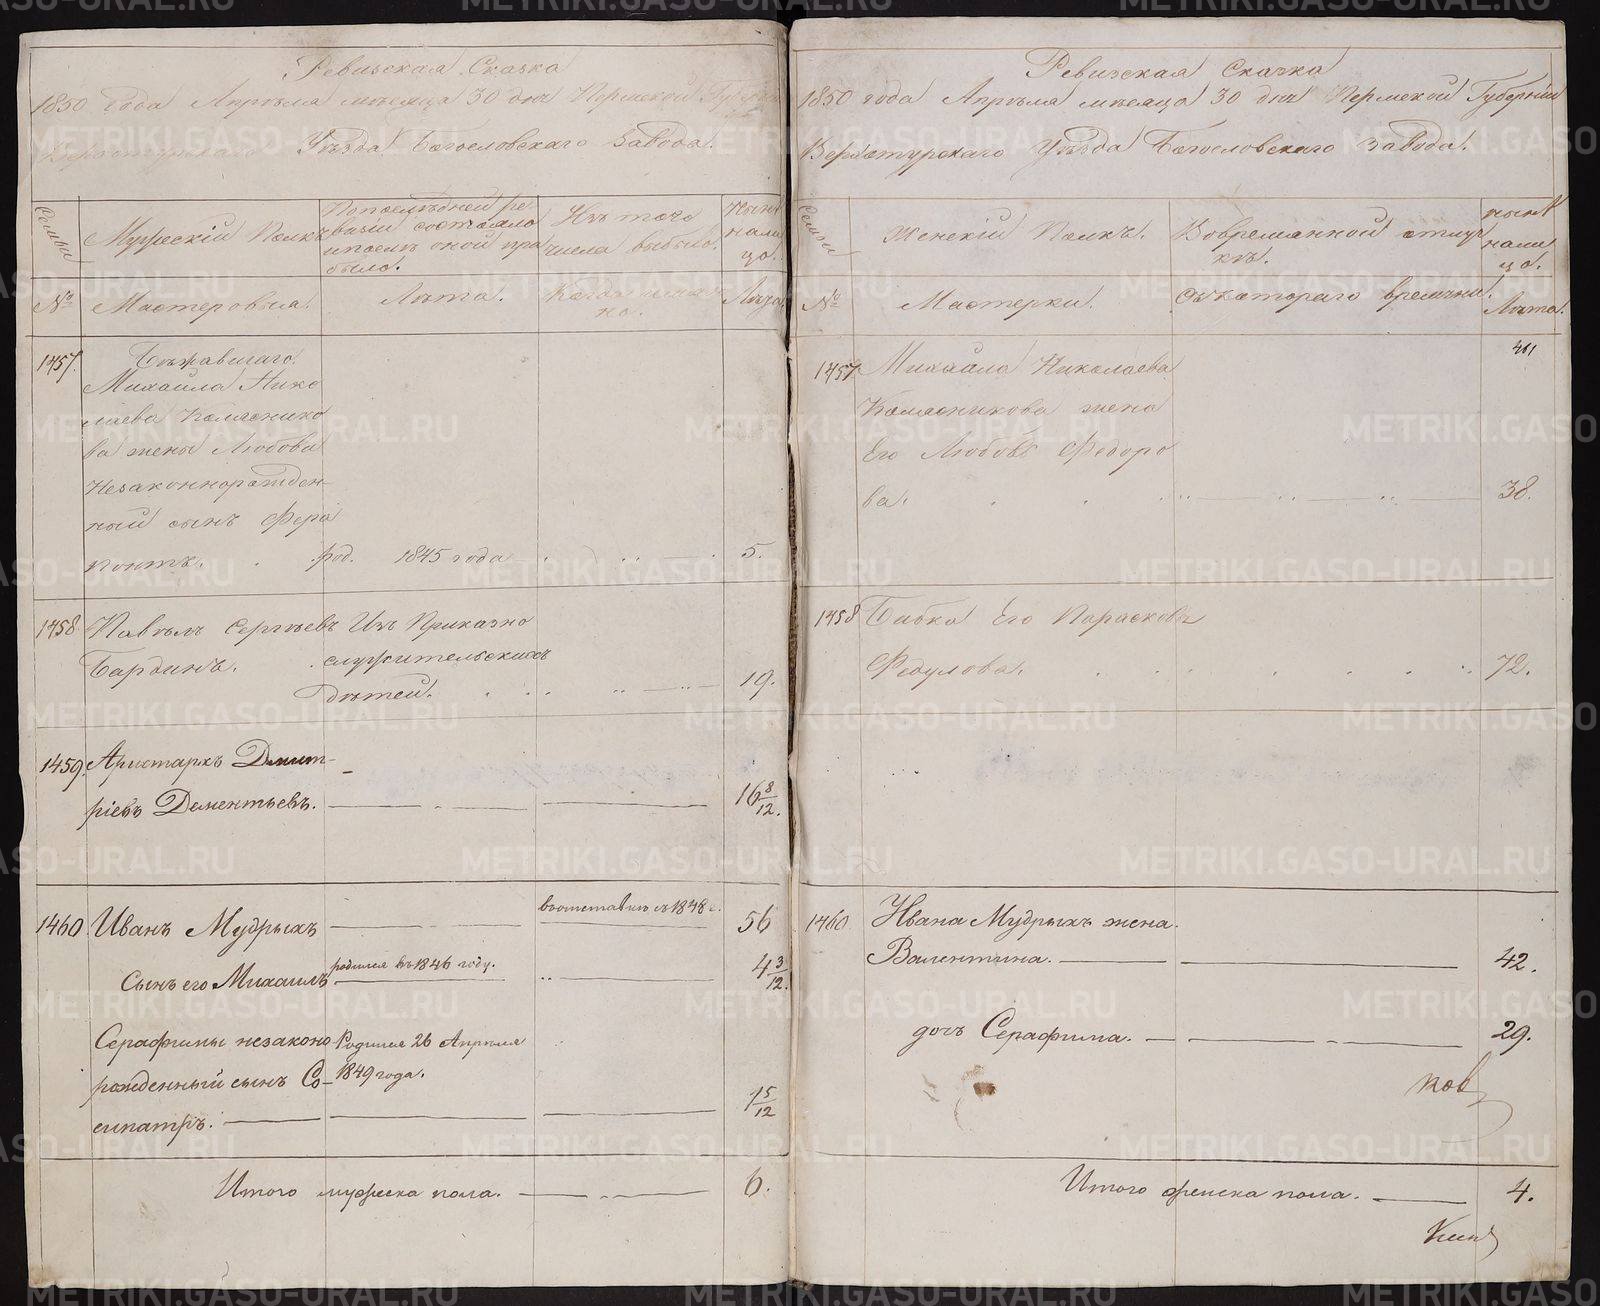 Ревизская Сказка
1850 года Апрѣля мѣсяца 30 дня Пермской Губерніи
Верхотурскаго Уѣзда Богословскаго Завода.
Семьи
Мужескій Полъ
По послѣдней ре-
визіи состояло
и послѣ оной при
было.
Изъ того
числа выбыло.
Нынѣ
на ли
цо.
№
Мастеровыя.
Лѣта.
Когда именно.
Лѣта
1457.
Бѣжавшаго
Михаила Нико
лаева Колясникo
ва жены Любови
Незаконнорожден-
ный сынъ Фера
понтъ. род. 1845 года 5.
1458 Павелъ Сергѣевъ Изъ Приказно
Бардинъ. служительскихъ
Дѣтей. 19.
1459. Аристархъ Дмит-
ріевъ Дементьевъ. 16 8/12.
1460 Иванъ Мудрыхъ въ отставкѣ съ 1848 г. 56
Сынъ его Михаилъ родился въ 1846 году. 4 3/12.
Серафимы незаконо Родился 26 Апрѣля
рожденный сынъ Со- 1849 года.
сипатръ. 1 5/12
Итого мужеска пола. 6.
Ревизская Сказка
1850 года Апрѣля мѣсяца 30 дня Пермской Губерніи
Верхотурскаго Уѣзда Богословскаго Завода.
Семьи
Женскій Полъ.
Во временной отлуч
кѣ.
нынѣ
на ли
цо.
№
Мастерки.
Съ котораго времяни.
Лѣта.
1457 Михаила Николаева
Колясникова жена
Его Любовь Федоро
ва. 38.
1458 Бабка Его Парасковья
Федулова. 72.
1460 Ивана Мудрыхъ жена
Валентина. 42.
дочь Серафима. 29.
ков
Итого женска пола. 4.
METRIKI.GASO-URAL.RU